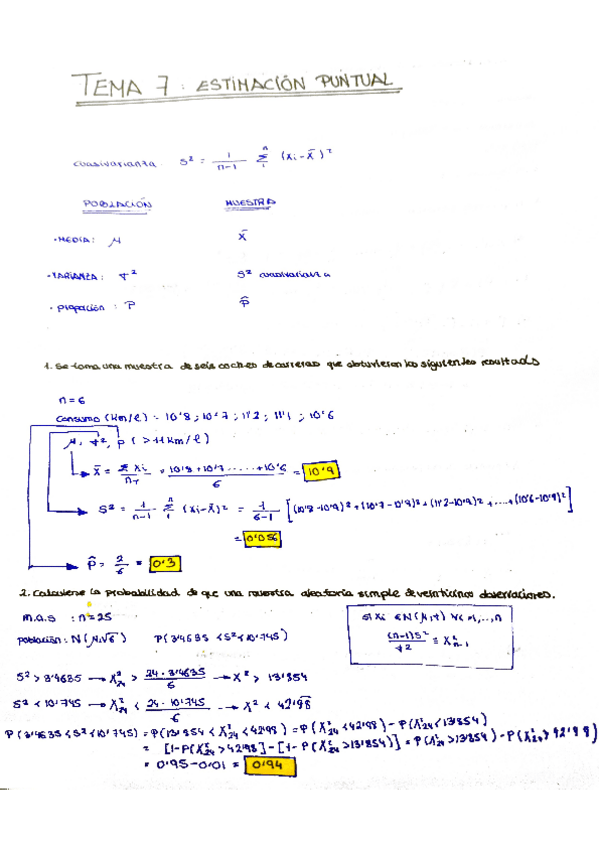 TEMA 7: ESTIMACIÓN PUNTUAL
cuasivarianza S² = 1/(n-1) Σⁿᵢ (xi-x̄)²
POBLACIÓN MUESTRA
·MEDIA: μ x̄
·VARIANZA: σ² S² cuasivarianza
·proporción: P p̂
1. Se toma una muestra de seis coches de carreras que obtuvieron los siguientes resultados
n=6
Consumo (km/l) = 10'8; 10'7; 11'2; 11'1; 10'6
μ, σ², p (>11km/l)
x̄ = Σxi/n = (10'8+10'7.....+10'6)/6 = 10'9
S² = 1/(n-1) Σⁿᵢ (xi-x̄)² = 1/(6-1) [(10'8-10'9)²+(10'7-10'9)²+(11'2-10'9)²+....+(10'6-10'9)²]
= 0'056
p̂ = 2/6 = 0'3
2. Calculese la probabilidad de que una muestra aleatoria simple de veinticinco observaciones.
m.a.s : n=25
población: N(μ,√6) P(3'4635 <S²<10'745)
si xi ∈ N(μ,σ) ∀i=1,...,n
(n-1)S²/σ² ≡ X²n-1
S² > 3'4635 → X²24 > 24·3'4635/6 → X² > 13'854
S² < 10'745 → X²24 < 24·10'745/6 → X² < 42'98
P(3'4635<S²<10'745) = P(13'854 < X²24 < 42'98) = P(X²24 < 42'98) - P(X²24 < 13'854)
= [1-P(X²24 > 42'98)] - [1-P(X²24 > 13'854)] = P(X²24 > 13'854) - P(X²24 > 42'98)
= 0'95-0'01 = 0'94